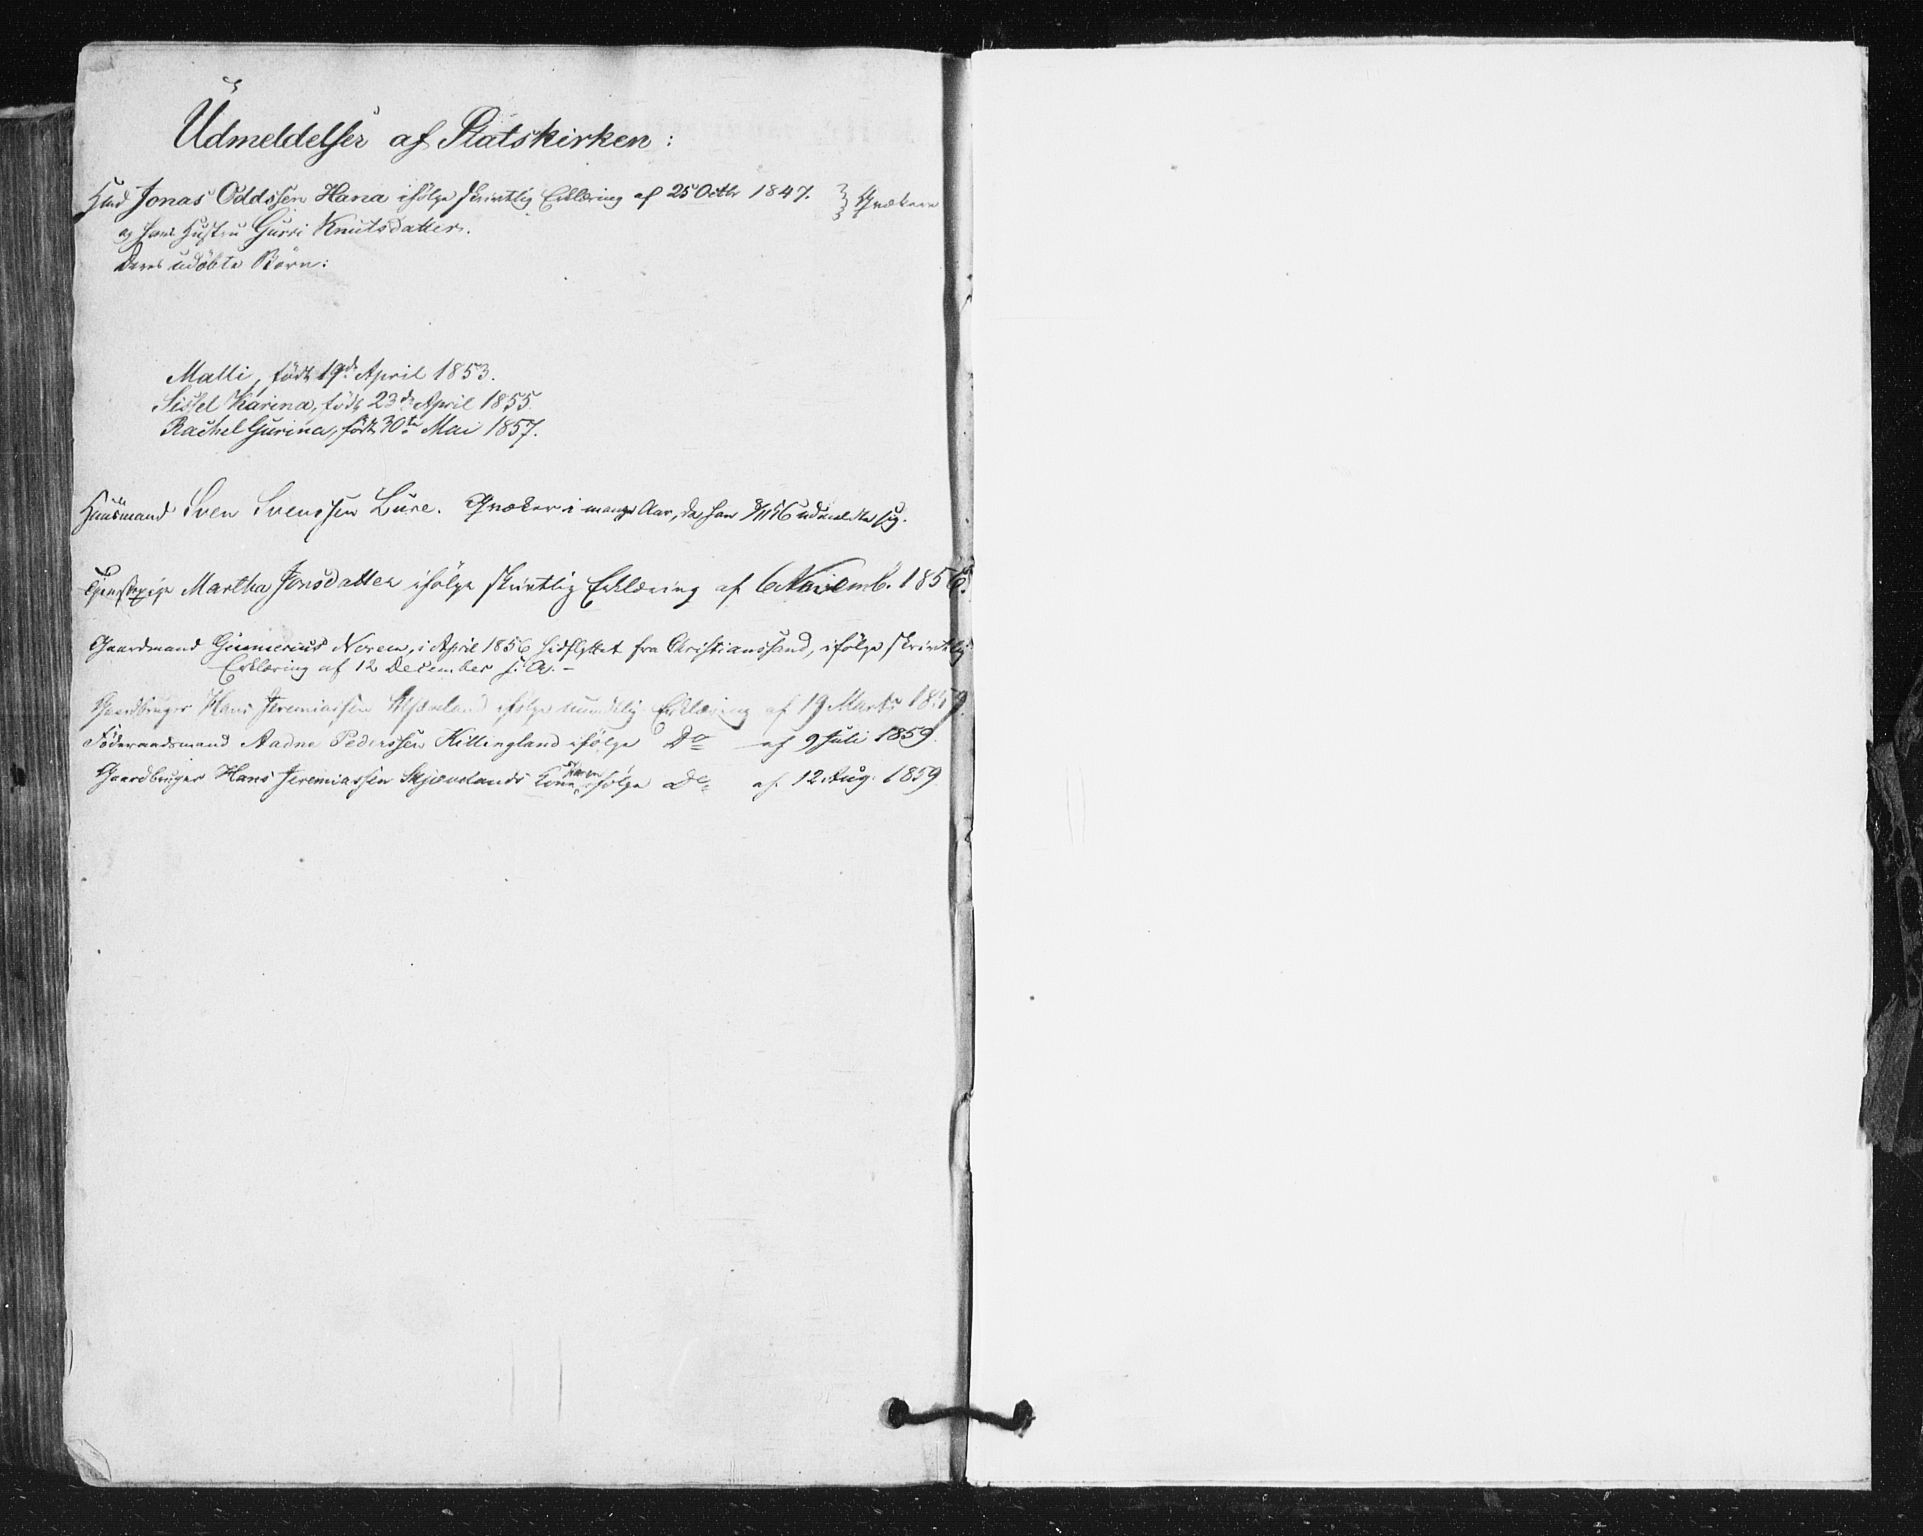 Udmeldelser af Statskirken:
Jonas Oddssen Hana ifölge skrivtlig Erklæring af 25 Octbr 1847. } Qvækere
og hans Hustru Gurri Knutsdatter.
Deres udöbte Börn:
Malli, födt 19de April 1853.
Sissel Karina, födt 23de April 1855.
Rachel Gurina, födt 30te Mai 1857.
Huusmand Sven Svenssen Lure. Qvæker i mange Aar, da han udmeldte sig.
Tjenstepige Martha Jonsdatter ifölge skrivtlig Erklæring af 6 Novemb. 1856.
Gaardmand Gunnerius Noren, i April 1856 hidflyttet fra Christianssand, ifölge skrivtlig
Erklæring af 12 December s. A. -
Gaardbruger Hans Jeremiassen Skjæveland ifölge mundtlig Erklæring af 19 Marts 1859.
Föderaadsmand Aadne Pederssen Killingland ifölge Do af 9 Juli 1859.
Gaardbruger Hans Jeremiassen Skjævelands Kone ifölge Do af 12 Aug. 1859